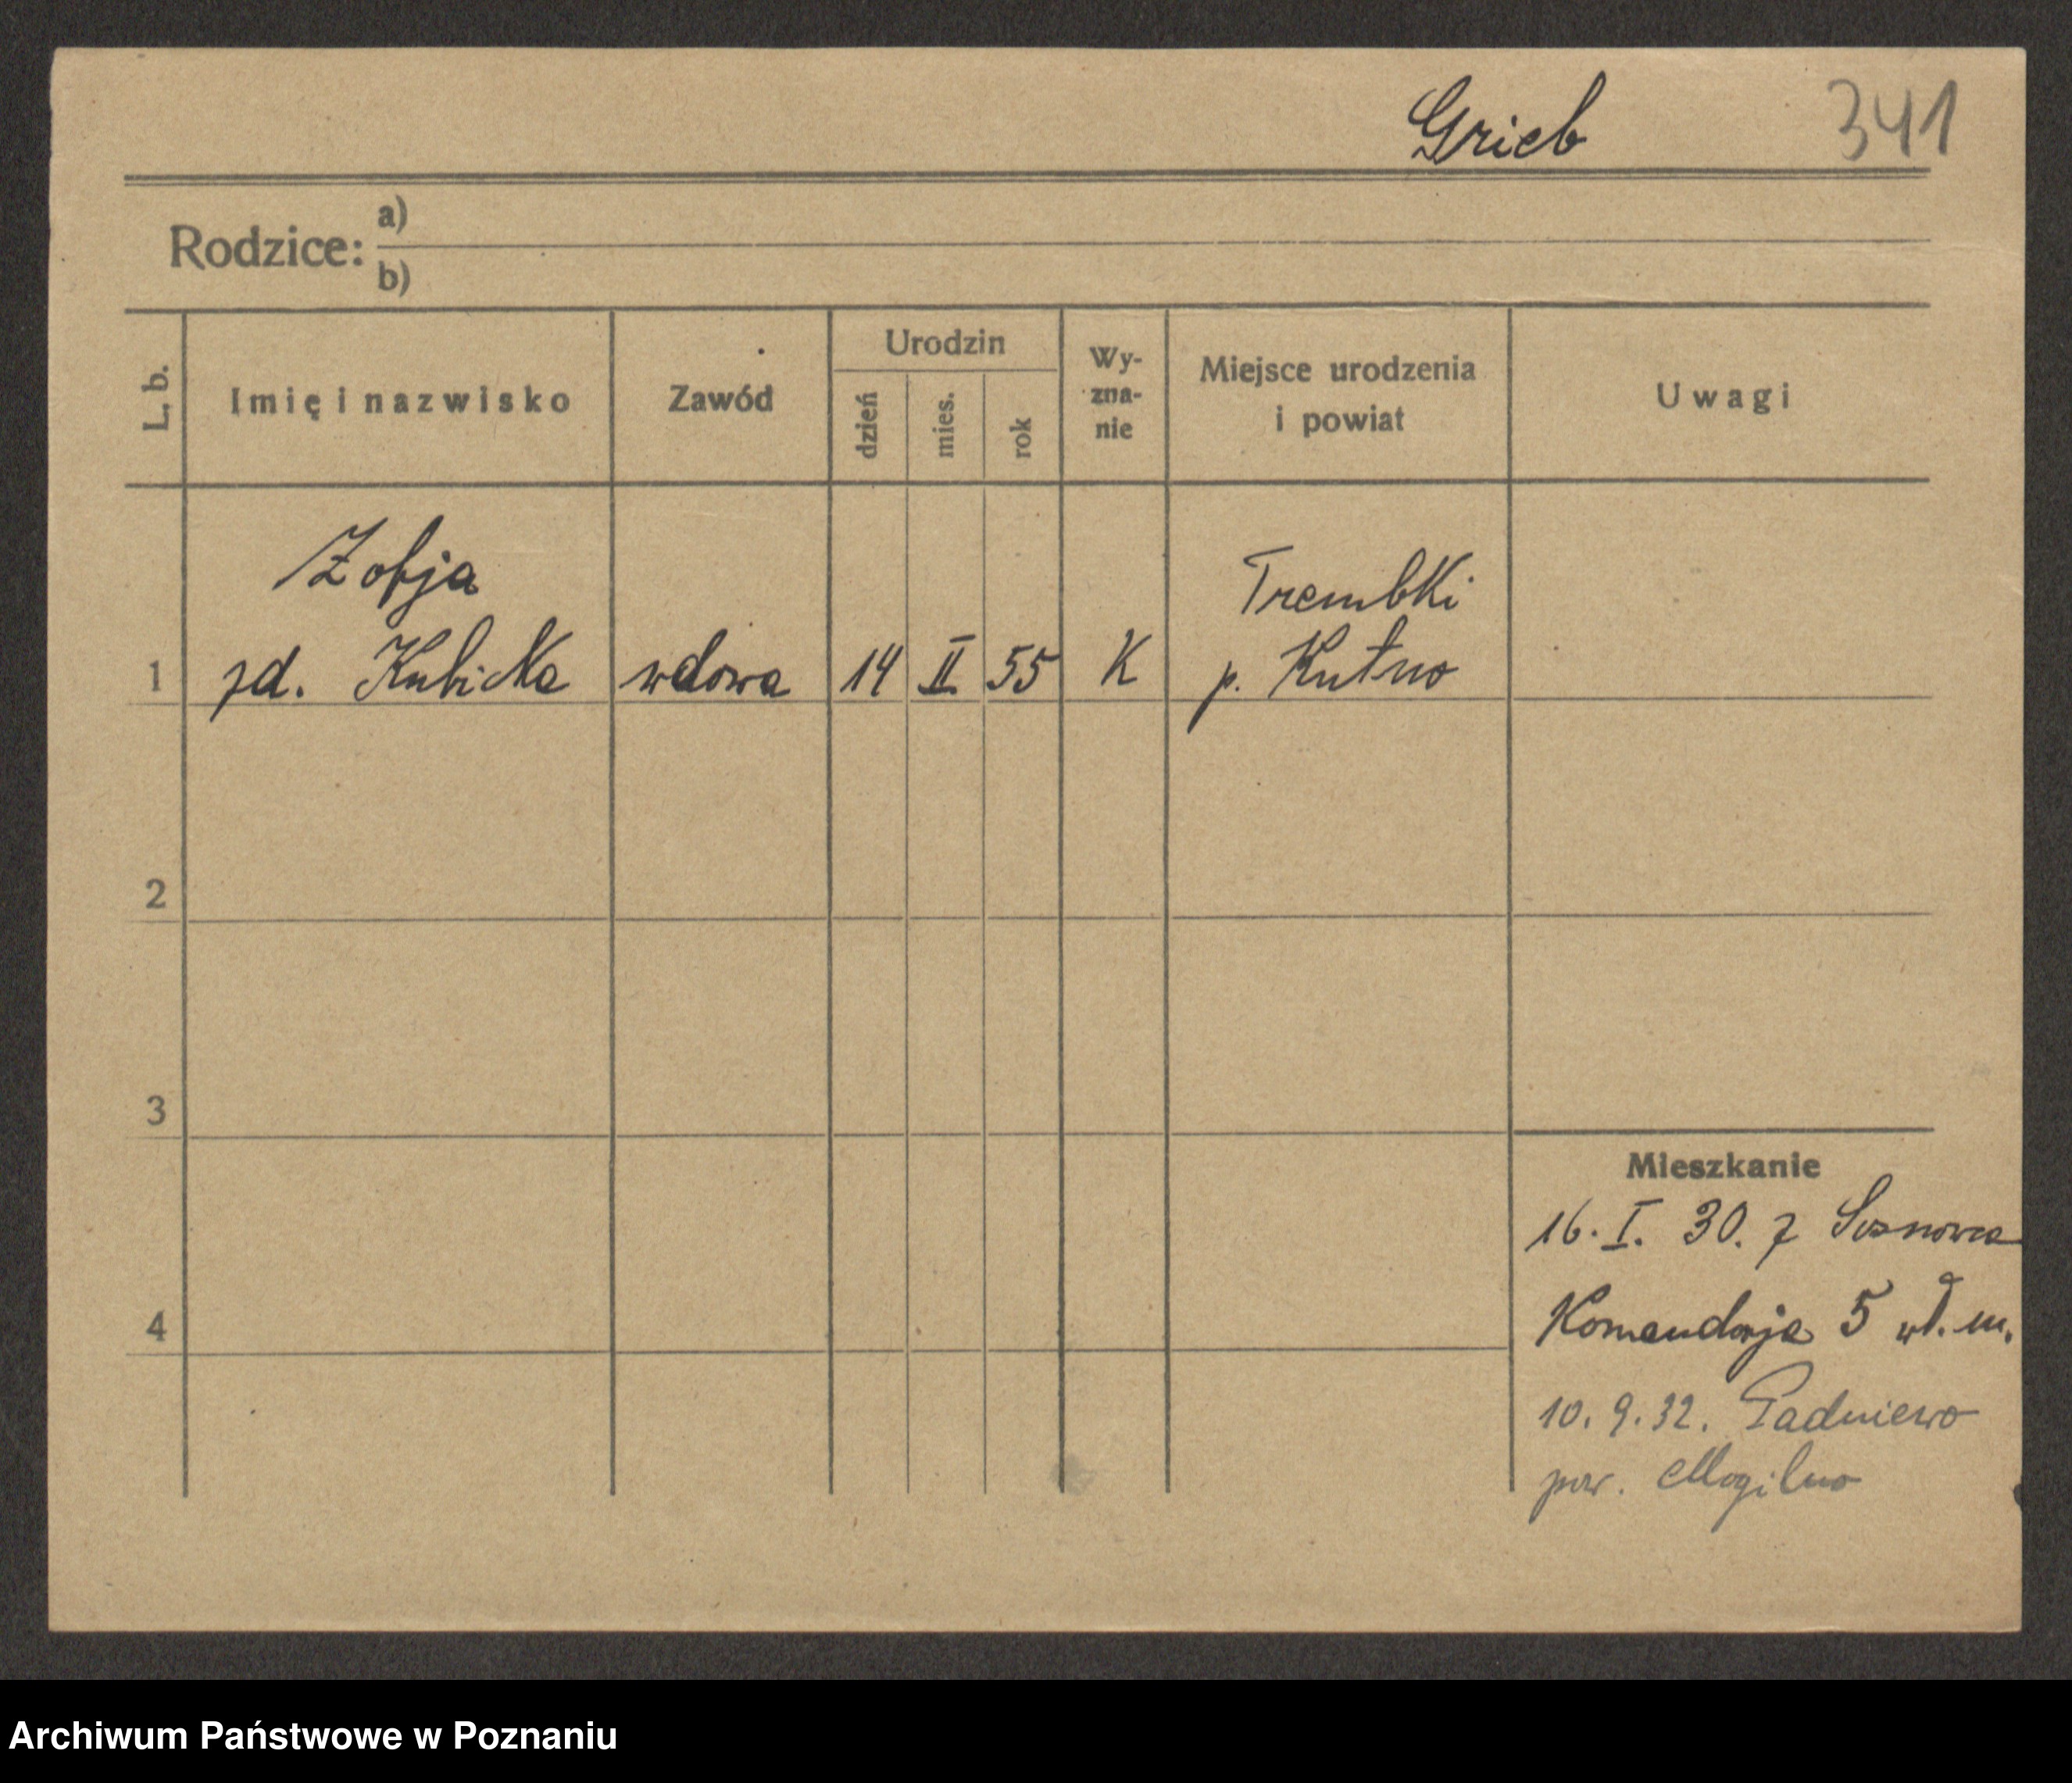 Grieb 341
Rodzice: a)
b)
L. b. Imię i nazwisko Zawód Urodzin dzień mies. rok Wy-zna-nie Miejsce urodzenia i powiat Uwagi
Zofja Trembki
1 zd. Kubicka wdowa 14 II. 55 K p. Kutno
2
3
Mieszkanie
16. I. 30. z Sosnowca
4 Komandorja 5 wł. m.
10. 9. 32. Padniewo
pow. Mogilno
Archiwum Państwowe w Poznaniu